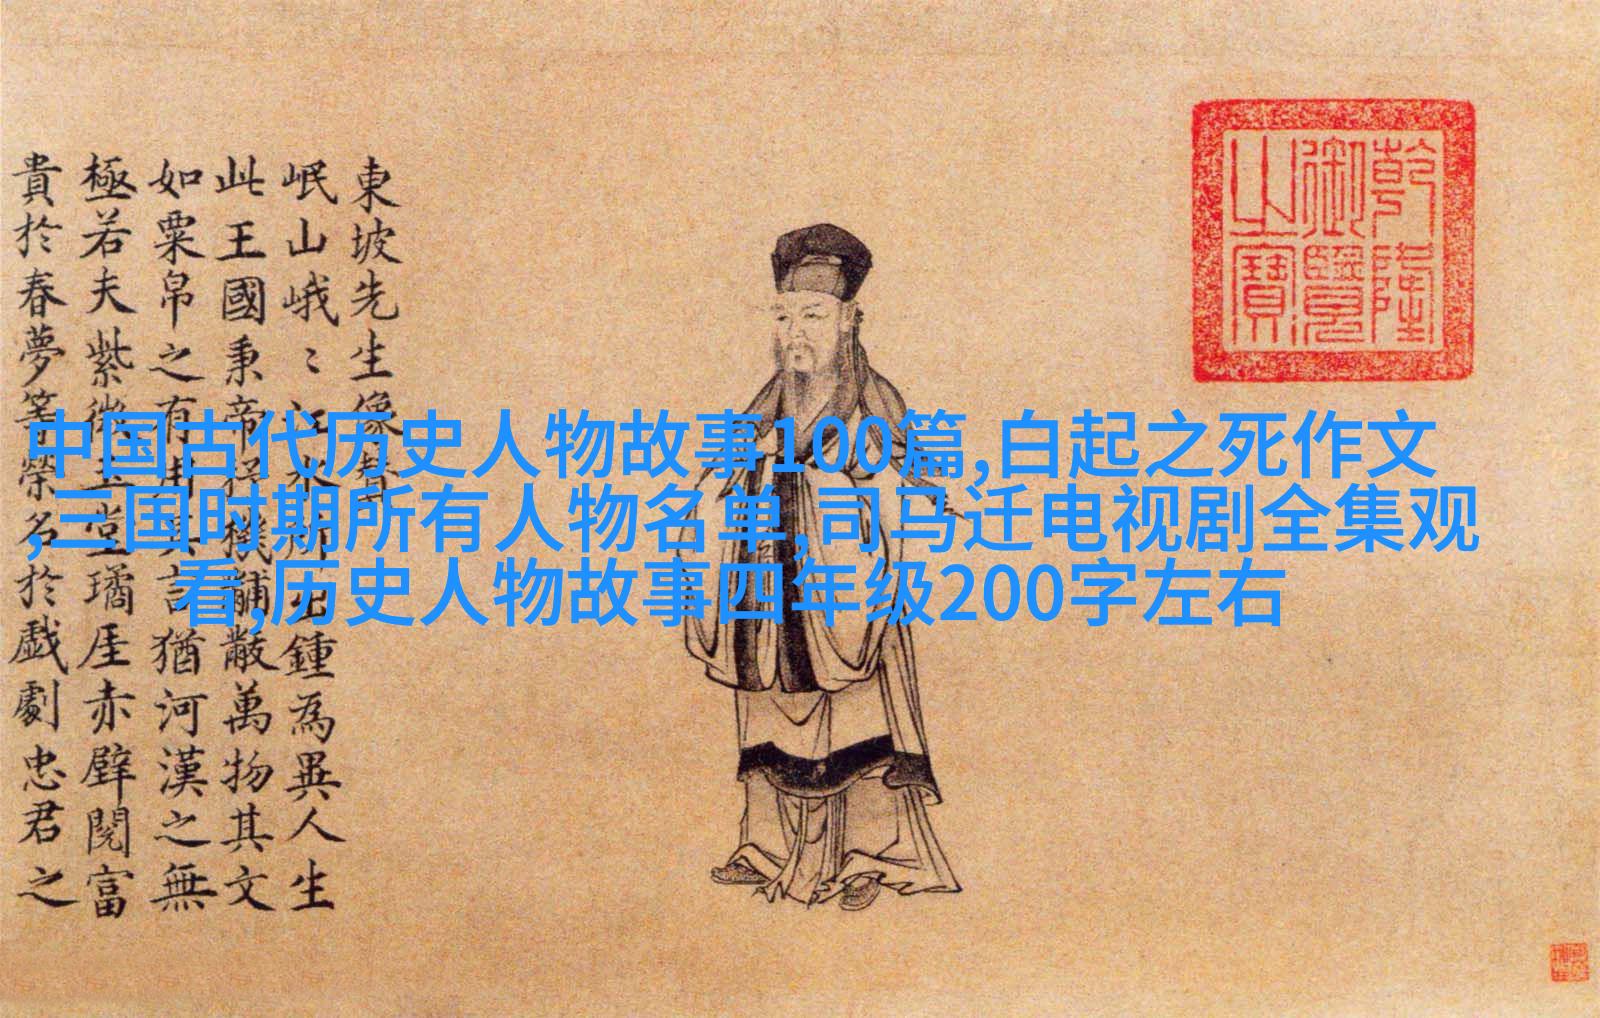 東坡先生像贊
岷山峨〻江水所出鍾為異人生
此王國秉帝杼機黼黻萬物其文
如粟帛之有用其言猶河漢之無
極若夫紫微玉堂璚厓赤壁閱富
貴於春夢等榮名於戲劇忠君之
乾隆
御覽
之寶
中国古代历史人物故事100篇,白起之死作文
,三国时期所有人物名单,司马迁电视剧全集观
看,历史人物故事四年级200字左右